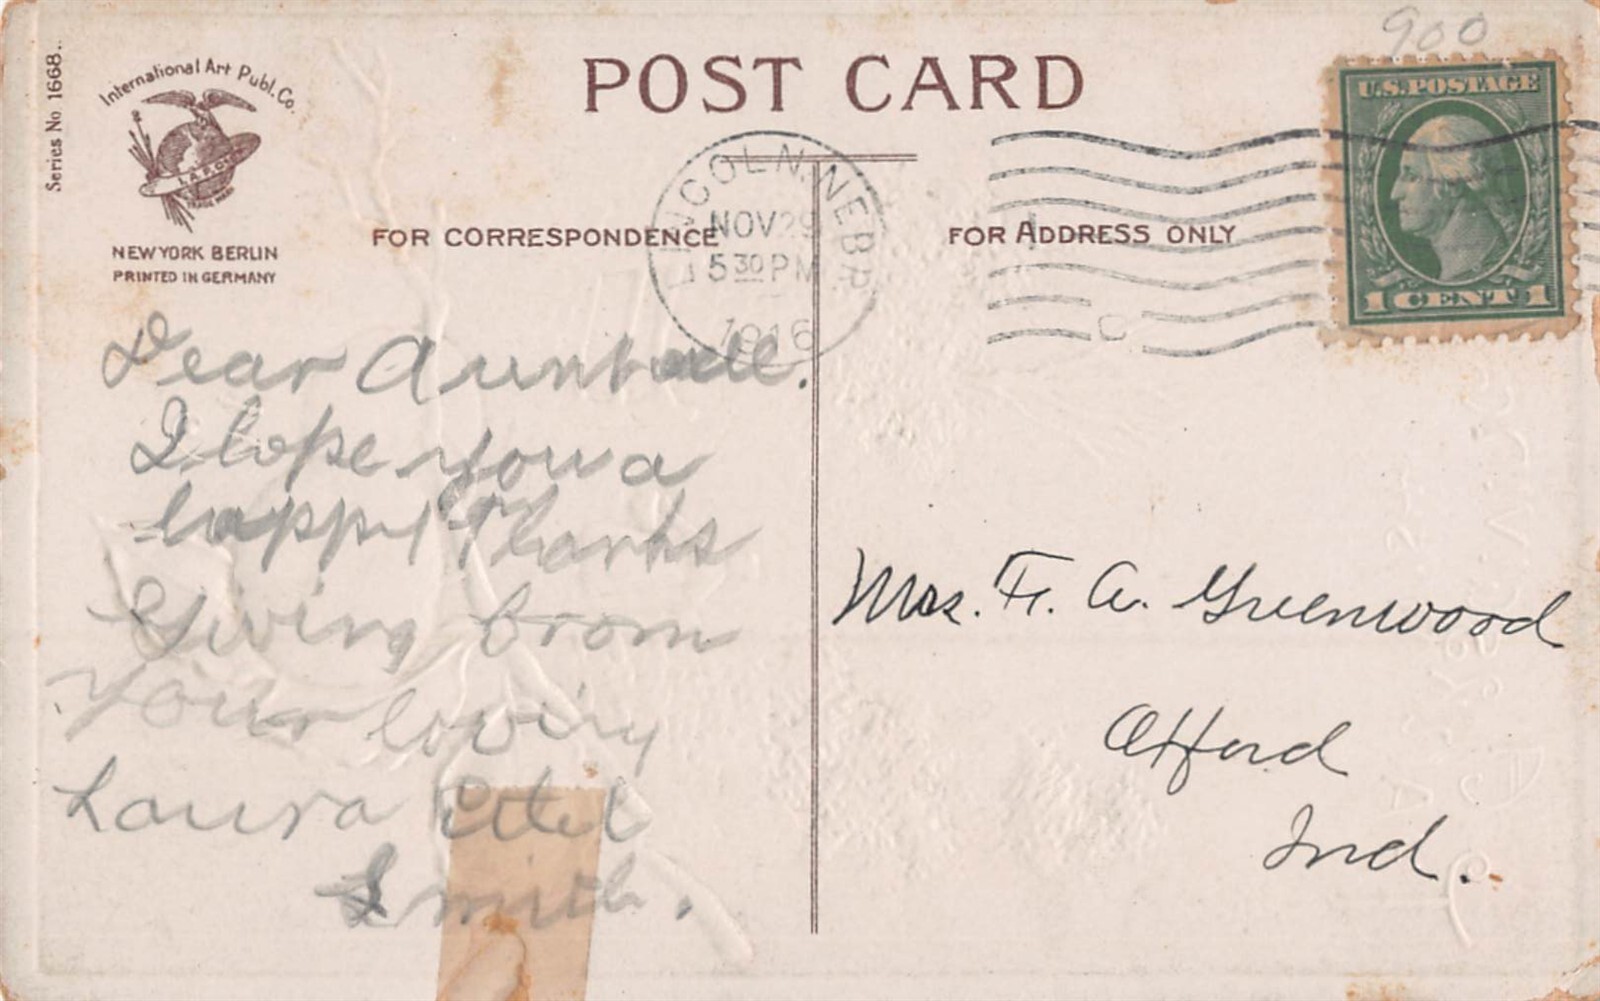 900
Series No 1668.
International Art Publ. Co.
I. A. P. Co.
TRADE MARK
NEW YORK BERLIN
PRINTED IN GERMANY
POST CARD
FOR CORRESPONDENCE
FOR ADDRESS ONLY
LINCOLN, NEBR.
NOV 29
5 30 PM
1916
U.S. POSTAGE
1 CENT 1
Dear Aunt
I hope you a
happy Thanks
Giving from
your loving
Laura
Smith.
Mrs. F. A. Greenwood
Ind.